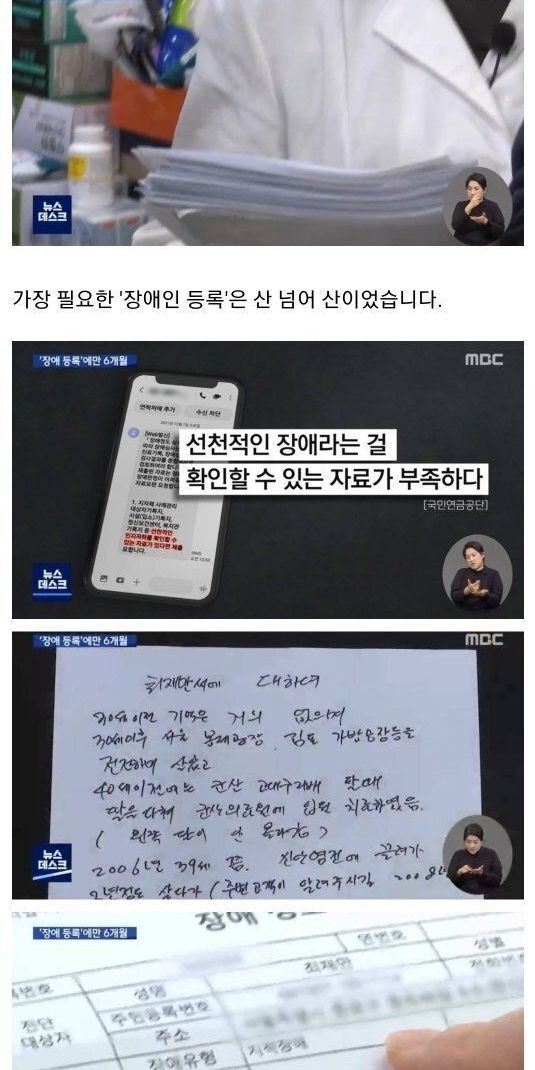 뉴스
데스크
가장 필요한 '장애인 등록'은 산 넘어 산이었습니다.
'장애 등록'에만 6개월
MBC
연락처에 추가
수신 차단
[Web발신]
선천적인 장애라는 걸
확인할 수 있는 자료가 부족하다
[국민연금공단]
1. 지자체 사례관리
대상자기록지,
시설(입소)기록지,
정신보건센터, 복지관
기록지 등 선천적인
인지저하를 확인할 수
있는 자료가 있다면 제출
요합니다.
MMS
뉴스
데스크
'장애 등록'에만 6개월
MBC
최재만씨에 대하여
20세이전 기억은 거의 없으며
30세이후 서울 봉제공장, 김포 가방공장등을
전전하며 살았고
40세이전에는 군산 고대구리배 탈때
팔을 다쳐 군산의료원에 입원 치료하였음.
(왼쪽 팔이 안 올라감)
2006년 39세 쯤. 진안염전에 끌려가
2년정도 살다가 (주변고객이 알려주시길 2008년
뉴스
데스크
'장애 등록'에만 6개월
장애
록번호
성명
최재완
연번호
성별
진단
대상자
주민등록번호
전화번호
주소
장애유형
지적장애